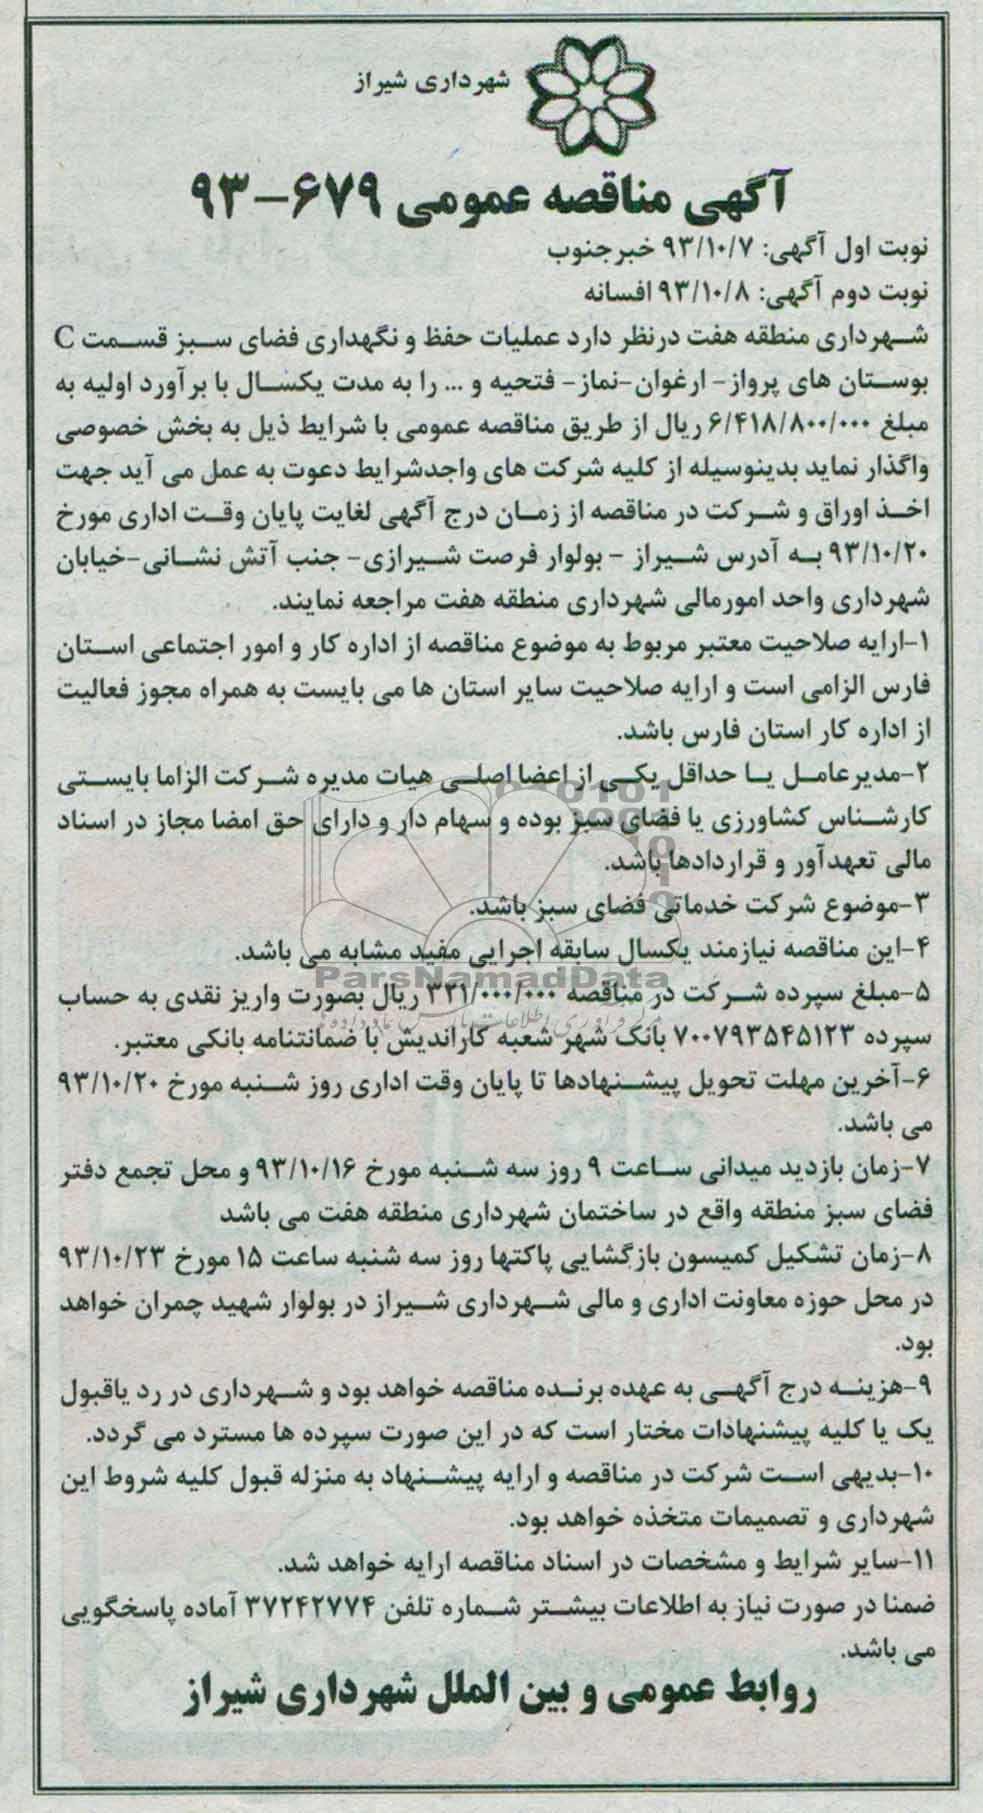 شهرداری شیراز
آگهی مناقصه عمومی ۶۷۹-۹۳
نوبت اول آگهی: ۹۳/۱۰/۷ خبرجنوب
نوبت دوم آگهی: ۹۳/۱۰/۸ افسانه
شهرداری منطقه هفت درنظر دارد عملیات حفظ و نگهداری فضای سبز قسمت C
بوستان های پرواز- ارغوان-نماز- فتحیه و ... را به مدت یکسال با برآورد اولیه به
مبلغ ۶/۴۱۸/۸۰۰/۰۰۰ ریال از طریق مناقصه عمومی با شرایط ذیل به بخش خصوصی
واگذار نماید بدینوسیله از کلیه شرکت های واجدشرایط دعوت به عمل می آید جهت
اخذ اوراق و شرکت در مناقصه از زمان درج آگهی لغایت پایان وقت اداری مورخ
۹۳/۱۰/۲۰ به آدرس شیراز - بولوار فرصت شیرازی- جنب آتش نشانی-خیابان
شهرداری واحد امورمالی شهرداری منطقه هفت مراجعه نمایند.
۱-ارایه صلاحیت معتبر مربوط به موضوع مناقصه از اداره کار و امور اجتماعی استان
فارس الزامی است و ارایه صلاحیت سایر استان ها می بایست به همراه مجوز فعالیت
از اداره کار استان فارس باشد.
۲-مدیرعامل یا حداقل یکی از اعضا اصلی هیات مدیره شرکت الزاما بایستی
کارشناس کشاورزی یا فضای سبز بوده و سهام دار و دارای حق امضا مجاز در اسناد
مالی تعهدآور و قراردادها باشد.
۳-موضوع شرکت خدماتی فضای سبز باشد.
۴-این مناقصه نیازمند یکسال سابقه اجرایی مفید مشابه می باشد.
ParsNamadData
۵-مبلغ سپرده شرکت در مناقصه ۳۲۱/۰۰۰/۰۰۰ ریال بصورت واریز نقدی به حساب
سپرده ۷۰۰۷۹۳۵۴۵۱۲۳ بانک شهر شعبه کاراندیش با ضمانتنامه بانکی معتبر.
۶-آخرین مهلت تحویل پیشنهادها تا پایان وقت اداری روز شنبه مورخ ۹۳/۱۰/۲۰
می باشد.
۷-زمان بازدید میدانی ساعت ۹ روز سه شنبه مورخ ۹۳/۱۰/۱۶ و محل تجمع دفتر
فضای سبز منطقه واقع در ساختمان شهرداری منطقه هفت می باشد
۸-زمان تشکیل کمیسون بازگشایی پاکتها روز سه شنبه ساعت ۱۵ مورخ ۹۳/۱۰/۲۳
در محل حوزه معاونت اداری و مالی شهرداری شیراز در بولوار شهید چمران خواهد
بود.
۹-هزینه درج آگهی به عهده برنده مناقصه خواهد بود و شهرداری در رد یاقبول
یک یا کلیه پیشنهادات مختار است که در این صورت سپرده ها مسترد می گردد.
۱۰-بدیهی است شرکت در مناقصه و ارایه پیشنهاد به منزله قبول کلیه شروط این
شهرداری و تصمیمات متخذه خواهد بود.
۱۱-سایر شرایط و مشخصات در اسناد مناقصه ارایه خواهد شد.
ضمنا در صورت نیاز به اطلاعات بیشتر شماره تلفن ۳۷۲۴۲۷۷۴ آماده پاسخگویی
می باشد.
روابط عمومی و بین الملل شهرداری شیراز